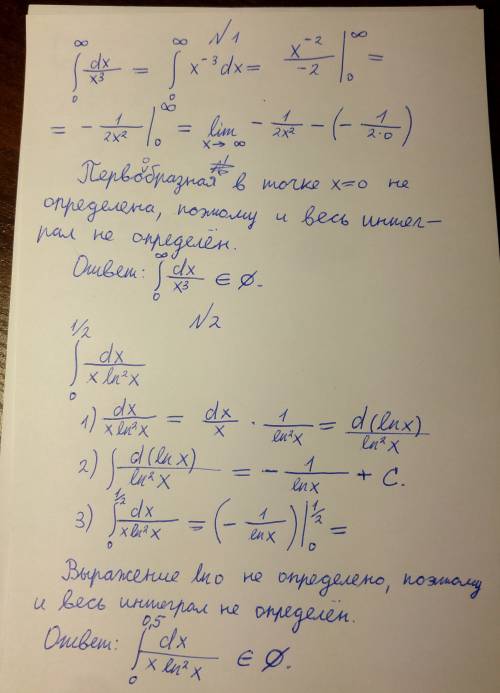 N1
∫₀^∞ dx/x³ = ∫₀^∞ x⁻³ dx = x⁻²/-2 |₀^∞ =
= - 1/2x² |₀^∞ = lim x→∞ - 1/2x² - (- 1/2·0)
Первообразная в точке x=0 не
определена, поэтому и весь интег-
рал не определён.
Ответ: ∫₀^∞ dx/x³ ∈ ∅.
N2
∫₀^1/2 dx/x ln²x
1) dx/x ln²x = dx/x · 1/ln²x = d(lnx)/ln²x
2) ∫ d(lnx)/ln²x = - 1/lnx + C.
3) ∫₀^1/2 dx/x ln²x = (- 1/lnx) |₀^1/2 =
Выражение ln0 не определено, поэтому
и весь интеграл не определён.
Ответ: ∫₀^0,5 dx/x ln²x ∈ ∅.